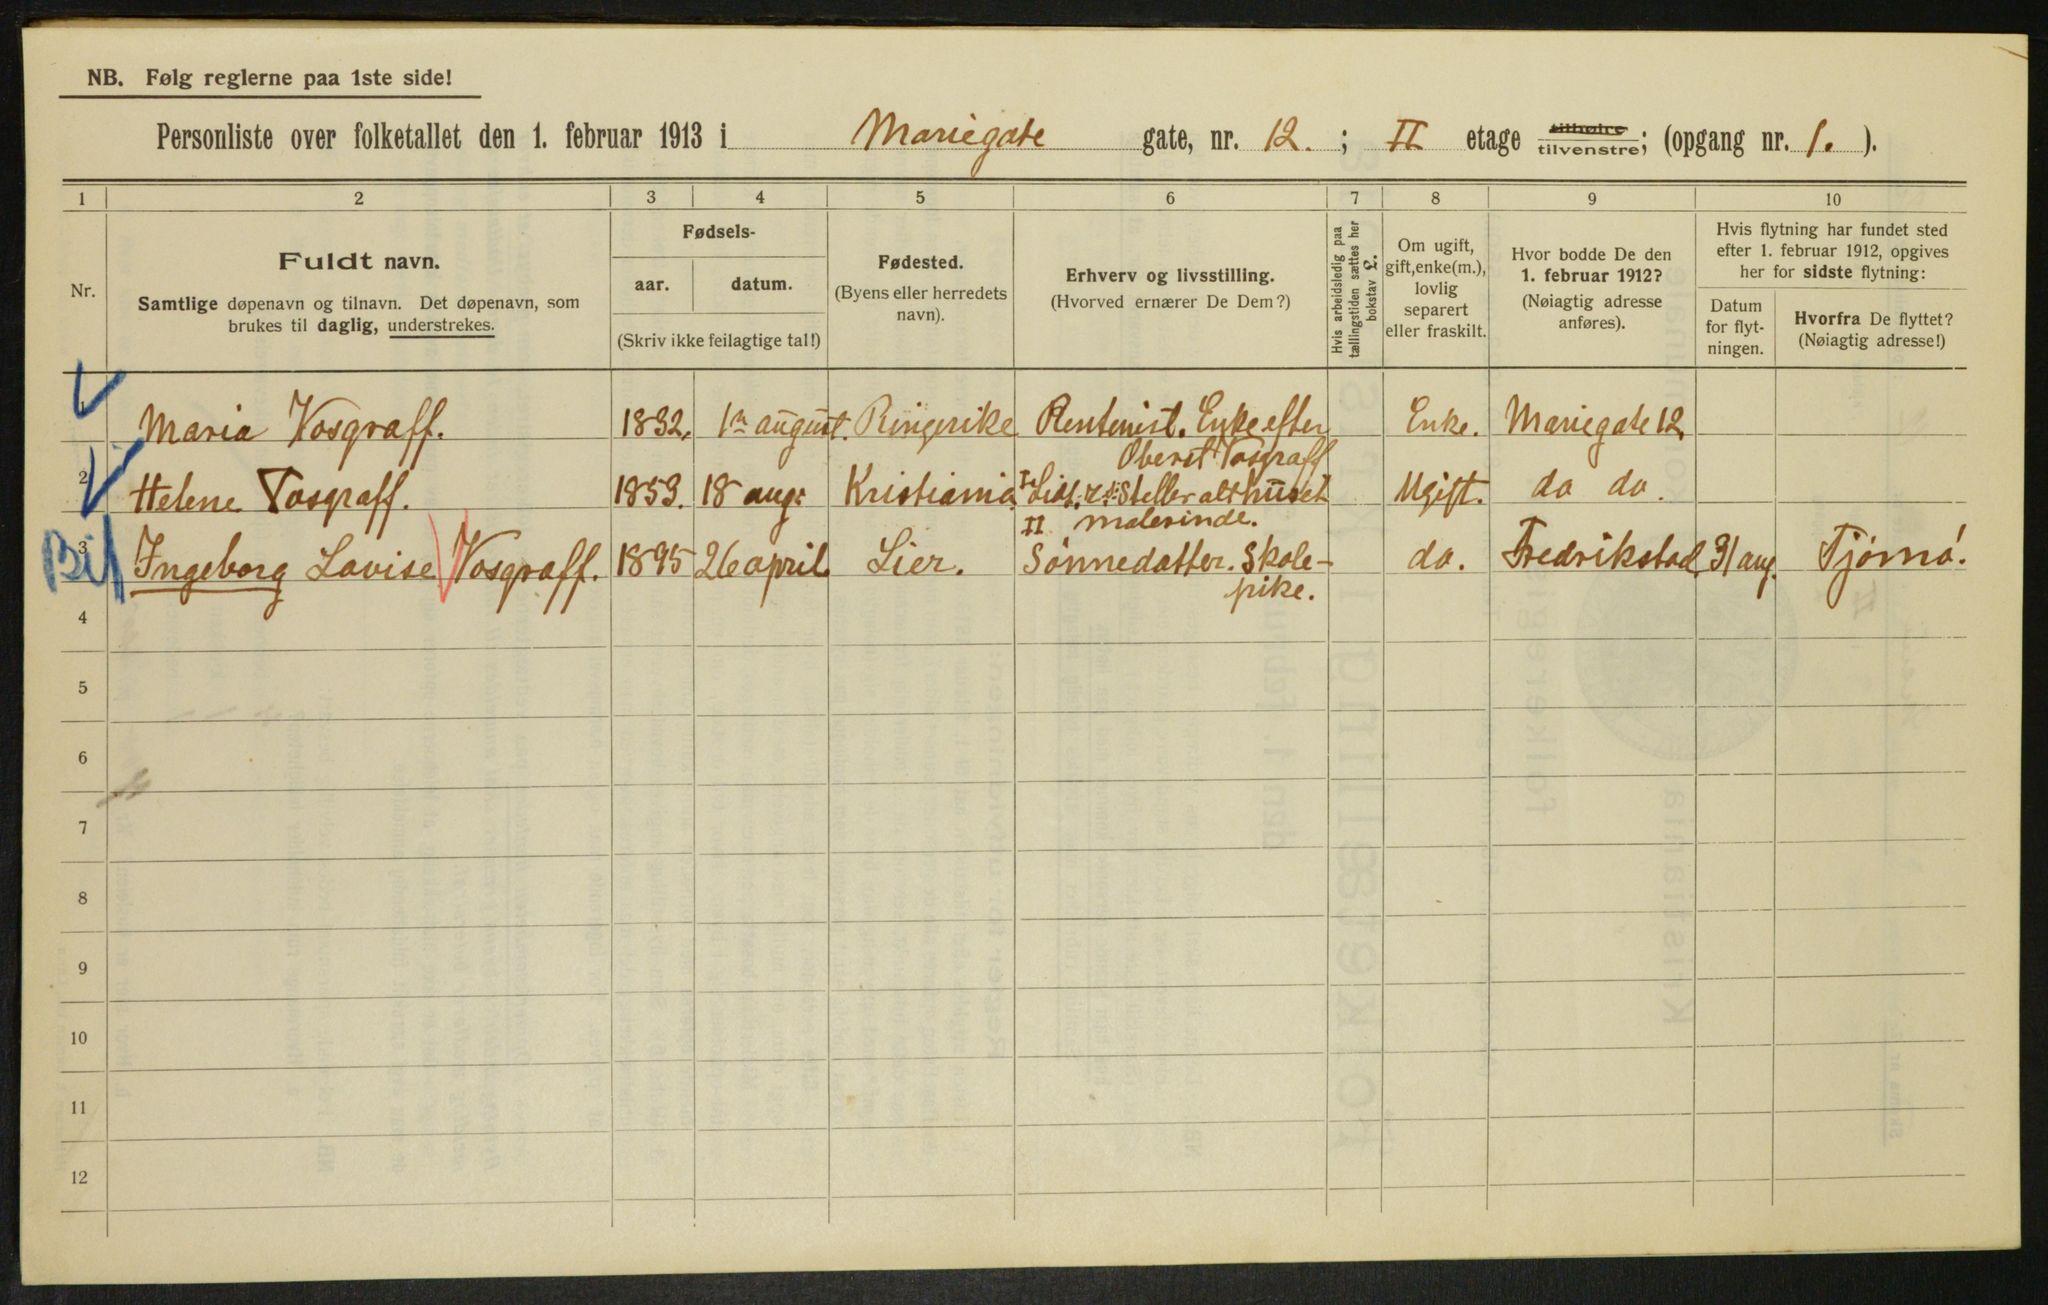 NB. Følg reglerne paa 1ste side!
Personliste over folketallet den 1. februar 1913 i Mariegate gate, nr. 12. ; II etage tilhøire tilvenstre; (opgang nr. 1. ).
1 2 3 4 5 6 7 8 9 10
Nr.
Fuldt navn.
Samtlige døpenavn og tilnavn. Det døpenavn, som
brukes til daglig, understrekes.
Fødsels-
aar. datum.
(Skriv ikke feilagtige tal!)
Fødested.
(Byens eller herredets
navn).
Erhverv og livsstilling.
(Hvorved ernærer De Dem?)
Hvis arbeidsledig paa
tællingstiden sættes her
bokstav L.
Om ugift,
gift, enke(m.),
lovlig
separert
eller fraskilt.
Hvor bodde De den
1. februar 1912?
(Nøiagtig adresse
anføres).
Hvis flytning har fundet sted
efter 1. februar 1912, opgives
her for sidste flytning:
Datum
for flyt-
ningen.
Hvorfra De flyttet?
(Nøiagtig adresse!)
1 Maria Vosgraff. 1832. 1ste august. Ringerike Rentenist. Enke efter Oberst Vosgraff Enke. Mariegate 12.
2 Helene Vosgraff. 1853. 18 aug: Kristiania malerinde. Ugift. do do.
3 Ingeborg Lovise Vosgraff. 1895 26 april Lier. Sönnedatter. Skole-
pike. do. Fredrikstad 31 aug. Tjömö.
4
5
6
7
8
9
10
11
12